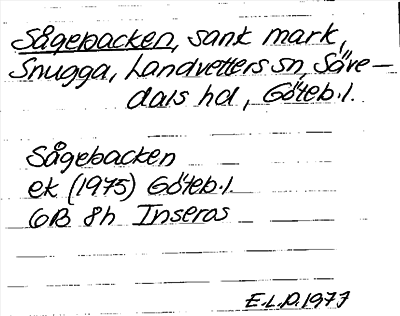 Sågebacken, sank mark,
Snugga, Landvetters sn, Säve-
dals hd, Göteb.l.
Sågebacken
ek (1975) Göteb.l.
6B 8h Inseros
E.L.D. 1977